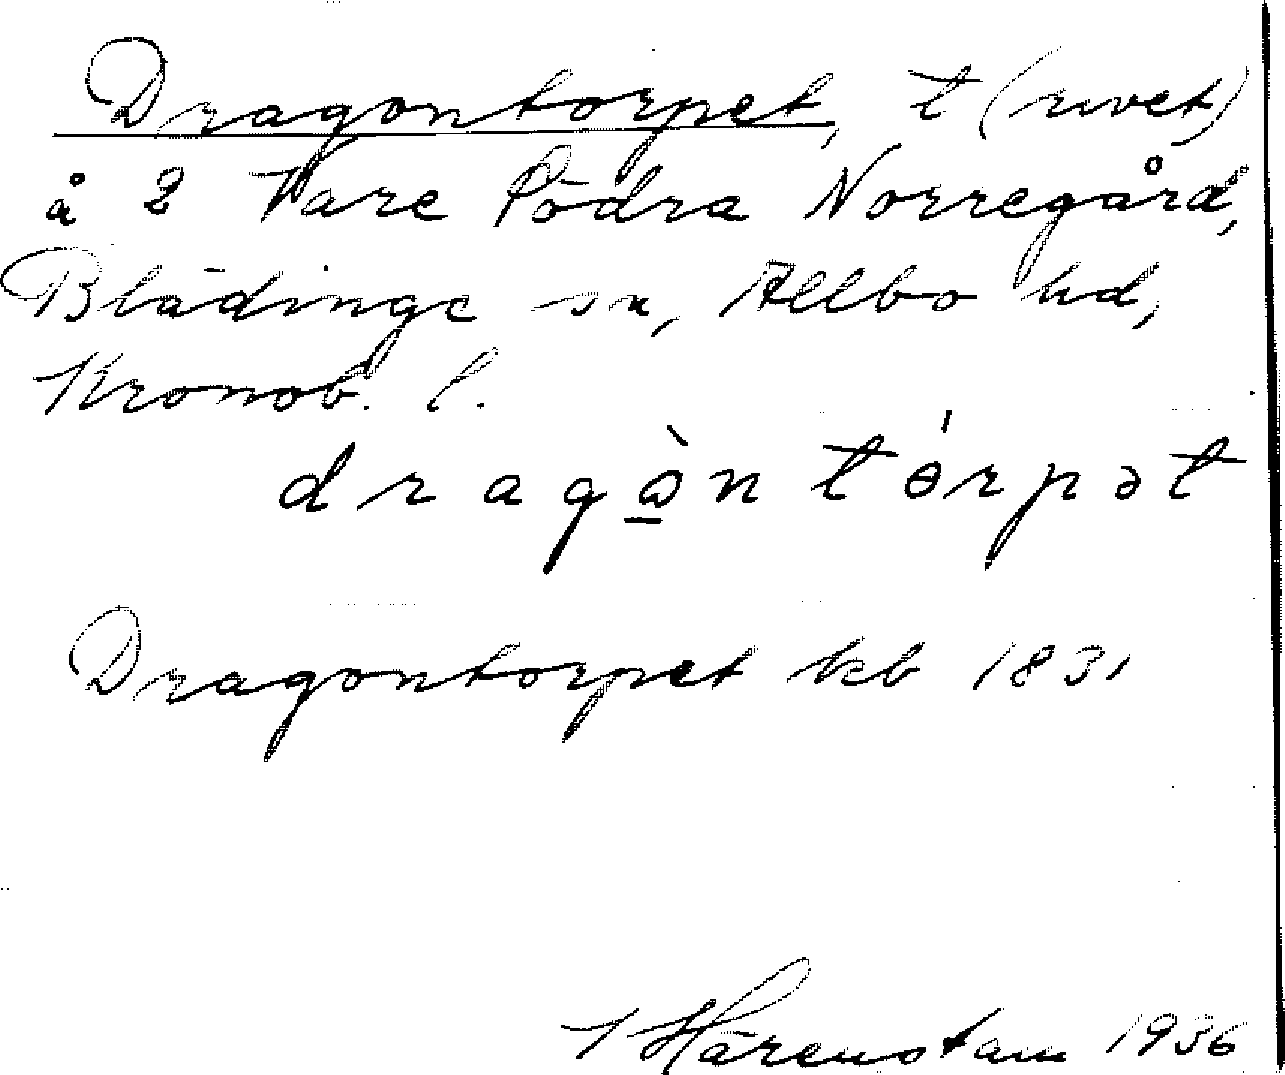 Dragontorpet, t (rivet)
å 2 Vare Södra Norregård,
Blädinge sn, Allbo hd,
Kronob. l.
dragòntórpət
Dragontorpet kb 1831
Härenstam 1936